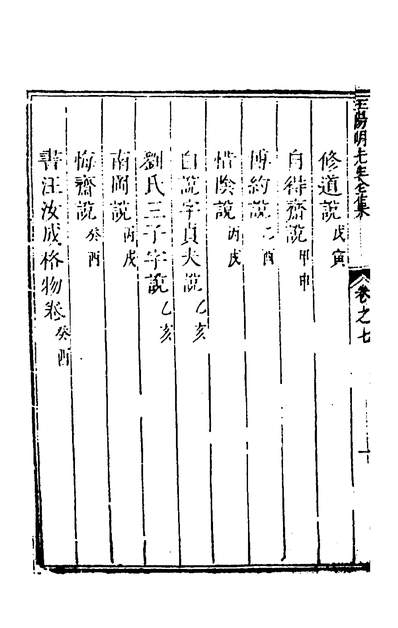 王陽明先生全集 卷之七
修道說 戊寅
自得齋說 甲申
博約說 乙酉
惜陰說 丙戌
白說字貞夫說 乙亥
劉氏三子字說 乙亥
南岡說 丙戌
悔齋說 癸酉
書汪汝成格物卷 癸酉